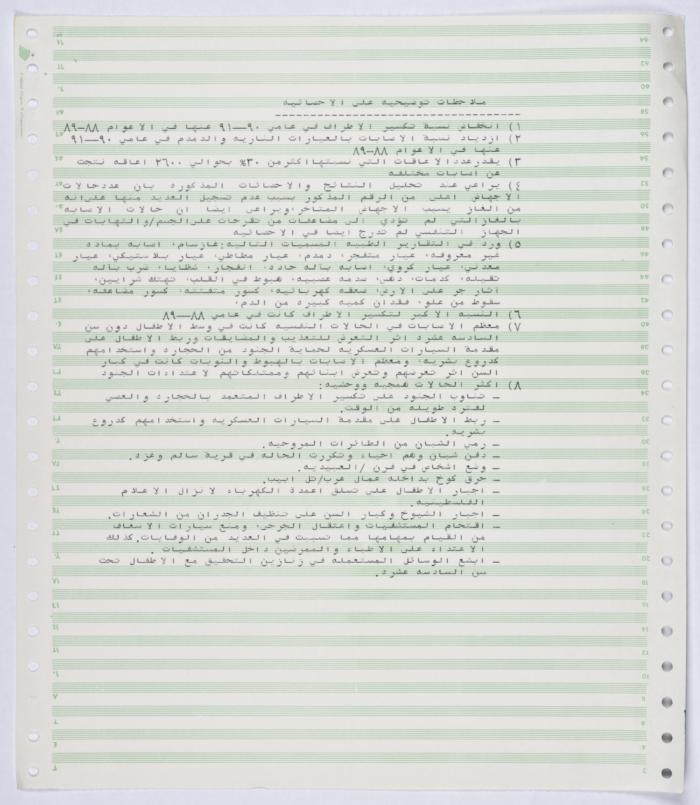 ملاحظات توضيحيه على الاحصائيه
١) انخفاض نسبة تكسير الاطراف في عامي ٩٠—٩١ عنها في الاعوام ٨٨—٨٩
٢) ازدياد نسبة الاصابات بالعيارات النارية والدمدم في عامي ٩٠—٩١
عنها في الاعوام ٨٨—٨٩
٣) يقدرعدد الاعاقات التي نسبتها اكثر من ٣٠% بحوالي ٢٦٠٠ اعاقه نتجت
عن اصابات مختلفه
٤) يراعي عند تحليل النتائج والاحصائات المذكوره بان عدد حالات
الاجهاض اعلى من الرقم المذكور بسبب عدم تسجيل العديد منها على انه
من الغاز بسبب الاجهاض المتاخر، ويراعى ايضا ان حالات الاصابه
بالغاز التي لم تؤدي الى مضاعفات من تقرحات على الجسم/والتهابات في
الجهاز التنفسي لم تدرج ايضا في الاحصائيه
٥) ورد في التقارير الطبيه المسميات التاليه: غاز سام، اصابه بماده
غير معروفه، عيار متفجر، دمدم، عيار مطاطي، عيار بلاستيكي، عيار
معدني، عيار كروي، اصابه بآله حاده، انفجار، شظايا، ضرب بآله
ثقيله، كدمات، دهس، صدمه عصبيه، هبوط في القلب، تهتك شرايين،
آثار جر على الارض، صعقه كهربائيه، كسور متفتته، كسور مضاعفه،
سقوط من علو، فقدان كميه كبيره من الدم.
٦) النسبه الاكبر لتكسير الاطراف كانت في عامي ٨٨—٨٩
٧) معظم الاصابات في الحالات النفسيه كانت في وسط الاطفال دون سن
السادسه عشره اثر التعرض للتعذيب والمضايقات وربط الاطفال على
مقدمة السيارات العسكريه لحماية الجنود من الحجاره واستخدامهم
كدروع بشريه، ومعظم الاصابات بالهبوط والنوبات كانت في كبار
السن اثر تعرضهم وتعرض ابنائهم وممتلكاتهم لاعتداءات الجنود
٨) اكثر الحالات همجيه ووحشيه:
– تناوب الجنود على تكسير الاطراف المتعمد بالحجاره والعصي
لفتره طويله من الوقت.
– ربط الاطفال على مقدمة السيارات العسكريه واستخدامهم كدروع
بشريه.
– رمي الشبان من الطائرات المروحيه.
– دفن شبان وهم احياء وتكررت الحاله في قرية سالم وغزه.
– وضع اشخاص في فرن /العبيديه.
– حرق كوخ بداخله عمال عرب/تل ابيب.
– اجبار الاطفال على تسلق اعمدة الكهرباء لانزال الاعلام
الفلسطينيه.
– اجبار الشيوخ وكبار السن على تنظيف الجدران من الشعارات.
– اقتحام المستشفيات واعتقال الجرحى، ومنع سيارات الاسعاف
من القيام بمهامها مما تسببت في العديد من الوفايات. كذلك
الاعتداء على الاطباء والممرضين داخل المستشفيات .
– ابشع الوسائل المستعمله في زنازين التحقيق مع الاطفال تحت
سن السادسه عشره.